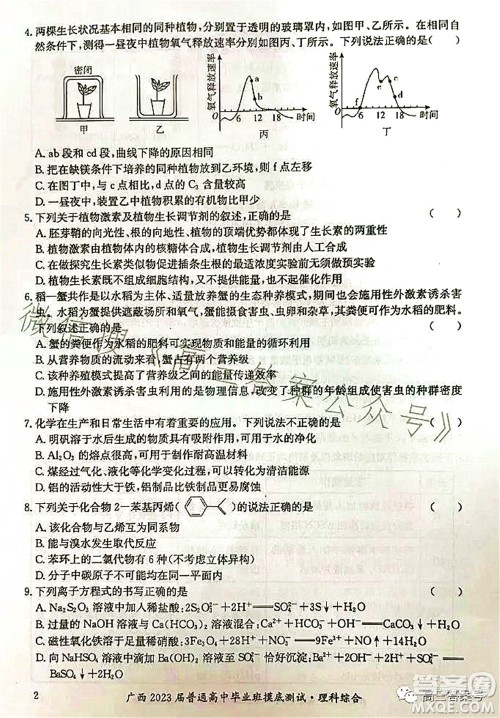 4. 两棵生长状况基本相同的同种植物，分别置于透明的玻璃罩内，如图甲、乙所示。在相同自然
条件下，测得一昼夜中植物氧气释放速率分别如图丙、丁所示。下列说法正确的是 （ ）
密闭
甲
乙
氧气释放速率
a
b
0 6 12 18 时间
丙
氧气释放速率
c
d
e
f
0 6 12 18 时间
丁
A. ab段和cd段，曲线下降的原因相同
B. 把在缺镁条件下培养的同种植物放到乙环境，则f点左移
C. 在图丁中，d点与c点相比，相同时间内d点C₃的含量高
D. 一昼夜中，装置乙中植物积累的有机物比甲少
5. 下列关于植物激素及植物生长调节剂的叙述，正确的是 （ ）
A. 胚芽鞘的向光性、根的向地性、植物的顶端优势都体现了生长素生理作用的两重性
B. 植物的脱落酸由植物体内的核糖体合成，与植物的抗逆性有关
C. 在做探究生长素类似物促进插条生根的最适浓度实验时，必须先做预实验
D. 生长素既不能组成细胞结构，又不提供能量，也不起催化作用
6. 稻—蟹共作是以水稻为主体、适量放养蟹的生态种养模式，期间也会施用性外激素诱杀害
虫。水稻为蟹提供遮蔽场所和氧气，蟹能摄食害虫、虫卵和杂草，其粪便可作为水稻的肥料。
下列叙述正确的是 （ ）
A. 蟹的粪便可作为水稻的肥料，这可实现物质和能量的循环利用
B. 从营养结构上看，该生态系统有两个营养级
C. 该种养殖模式提高了营养级之间的能量传递效率
D. 施用性外激素诱杀害虫利用的是物理信息，改变了种群的年龄组成使害虫的种群密度
下降
7. 化学在生产和日常生活中有着重要的应用。下列说法不正确的是 （ ）
A. 明矾溶于水形成的胶体能吸附水中悬浮物，可用于水的净化
B. Al₂O₃的熔点很高，可用于制作耐高温材料
C. 煤经过气化、液化等物理变化可转化为清洁燃料
D. 铝的活动性大于铁，铝制品比铁制品更易腐蚀
8. 下列关于化合物2—苯基丙烯( )的说法正确的是 （ ）
A. 该化合物与乙烯互为同系物
B. 能与溴水发生取代反应
C. 苯环上的二氯代物有6种(不考虑立体异构)
D. 分子中所有原子可能在同一平面内
9. 下列离子方程式的书写正确的是 （ ）
A. Na₂S₂O₃溶液中加入稀盐酸：2S₂O₃²⁻+2H⁺══SO₄²⁻+3S↓+H₂O
B. 过量的NaOH溶液与Ca(HCO₃)₂溶液混合：Ca²⁺+HCO₃⁻+OH⁻══CaCO₃↓+H₂O
C. 磁性氧化铁溶于足量稀硝酸：3Fe₃O₄+28H⁺+NO₃⁻══9Fe³⁺+NO↑+14H₂O
D. 向Ba(OH)₂溶液中滴加NaHSO₄溶液至恰好沉淀完全：Ba²⁺+OH⁻+H⁺+SO₄²⁻══BaSO₄↓+H₂O
2
广西2023届普通高中毕业班摸底测试·理科综合